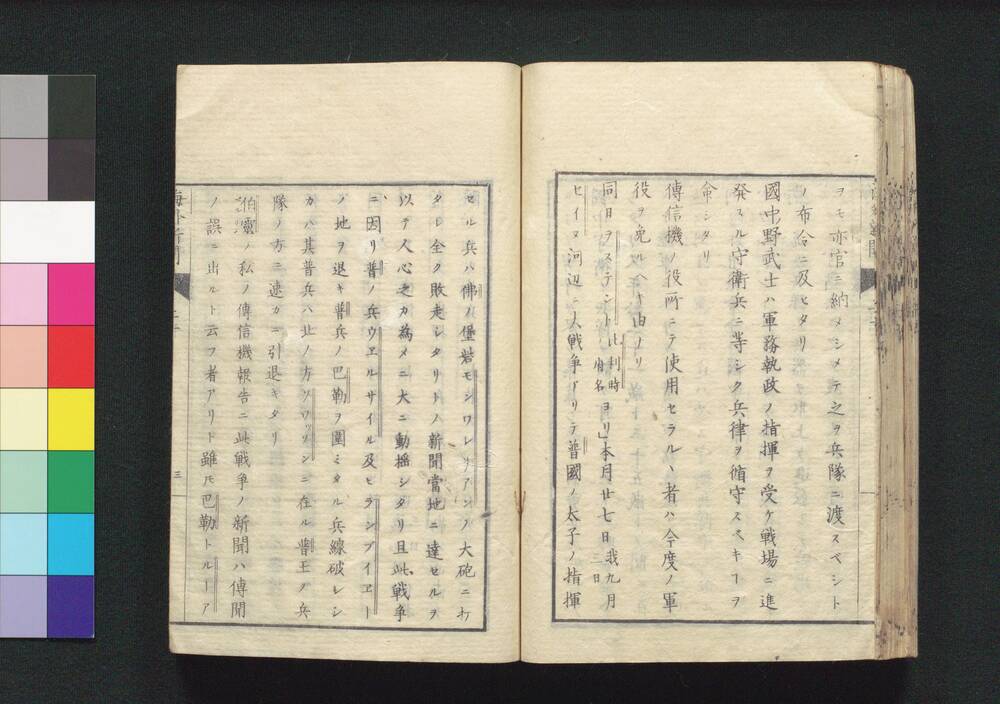 ヲモ亦官ニ納メシメテ之ヲ兵隊ニ渡スベシト
ノ布令ニ及ヒタリ
國中野武士ハ軍務執政ノ指揮ヲ受ケ戦場ニ進
発スル守衛兵ニ等シク兵律ヲ循守スベキヿヲ
命シタリ
傳信機ノ役所ニテ使用セラルヽ者ハ今度ノ軍
役ヲ免ルヘキ由ナリ
同日ヲステンド比利時ノ府名ヨリ」本月廿七日我九月三日
ヒイヌ河辺ニ大戦争アリテ普國ノ太子ノ指揮
セル兵ハ佛ノ堡砦モンワレリアンノ大砲ニ打
タレ全ク敗走シタリトノ新聞當地ニ達セルヲ
以テ人心之カ為メニ大ニ動揺シタリ且此戦争
ニ因リ普ノ兵ウヱルサイル及ヒランブイヱー
ノ地ヲ退キ普兵ノ巴勒ヲ圍ミタル兵線破レシ
カハ其普兵ハ北ノ方ソワッソンニ在ル普王ノ兵
隊ノ方ニ速カニ引退キタリ
伯靈ノ私ノ傳信機報告ニ此戦争ノ新聞ハ傳聞
ノ誤ニ出ルト云フ者アリト雖𪜈巴勒トルーア
三